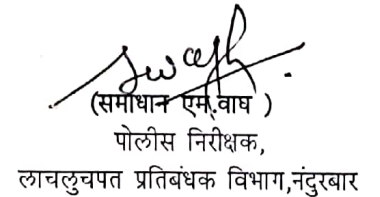 (समाधान एम.वाघ )
पोलीस निरीक्षक,
लाचलुचपत प्रतिबंधक विभाग,नंदुरबार